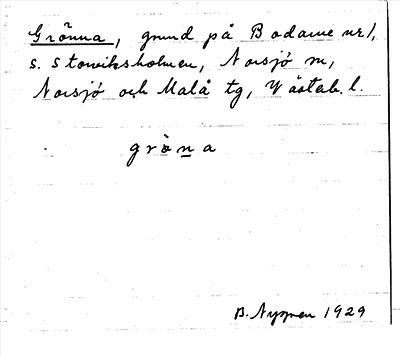 Grönna, grund på Bodarne nr 1,
s. Storviksholmen, Norsjö sn,
Norsjö och Malå tg, Västerb. l.
gröna
B. Nyman 1929